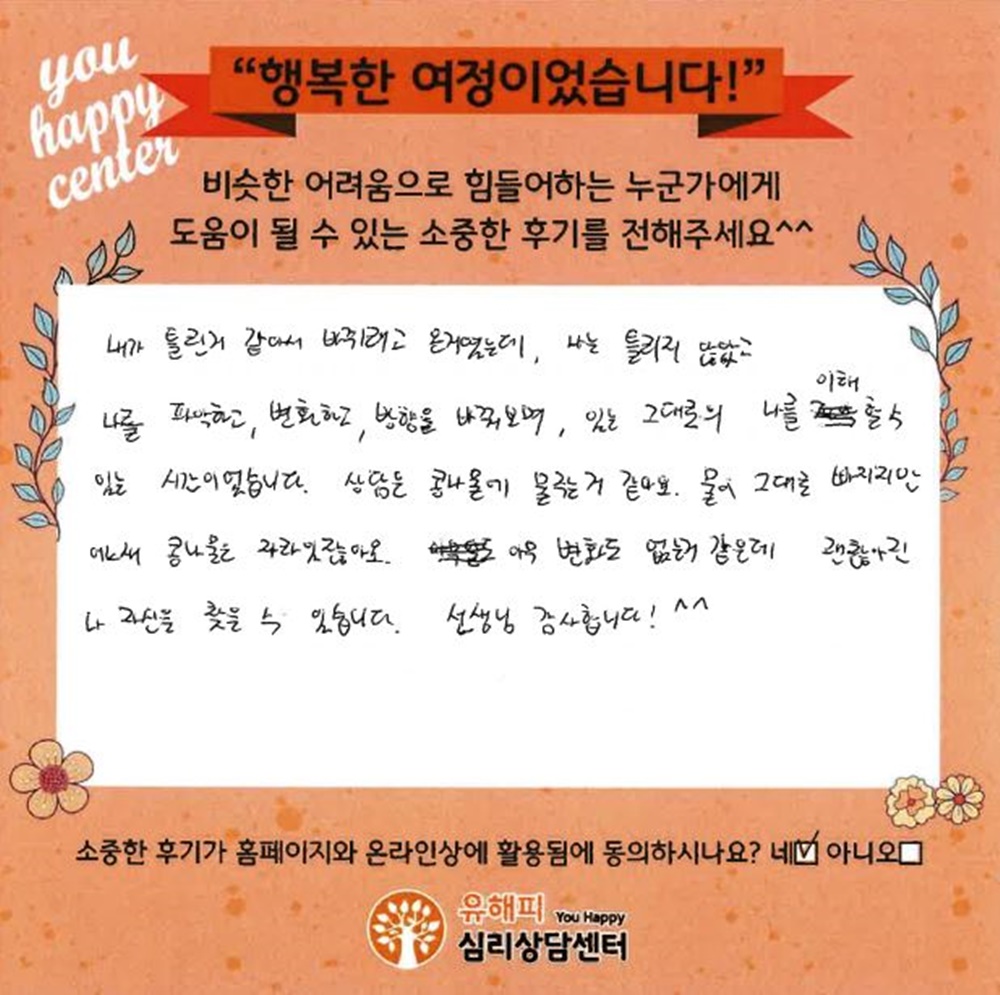 you
happy
center
“행복한 여정이었습니다!”
비슷한 어려움으로 힘들어하는 누군가에게
도움이 될 수 있는 소중한 후기를 전해주세요^^
내가 틀린거 같아서 바뀌려고 온거였는데, 나는 틀리지 않았고
나를 파악하고, 변화하고, 방향을 바꿔보며, 있는 그대로의 나를 이해 할 수
있는 시간이었습니다. 상담은 콩나물에 물주는거 같아요. 물이 그대로 빠지지만
어느새 콩나물은 자라있잖아요. 아무 변화도 없는거 같은데 괜찮아진
나 자신을 찾을 수 있습니다. 선생님 감사합니다! ^^
소중한 후기가 홈페이지와 온라인상에 활용됨에 동의하시나요? 네☑ 아니오☐
유해피 You Happy
심리상담센터